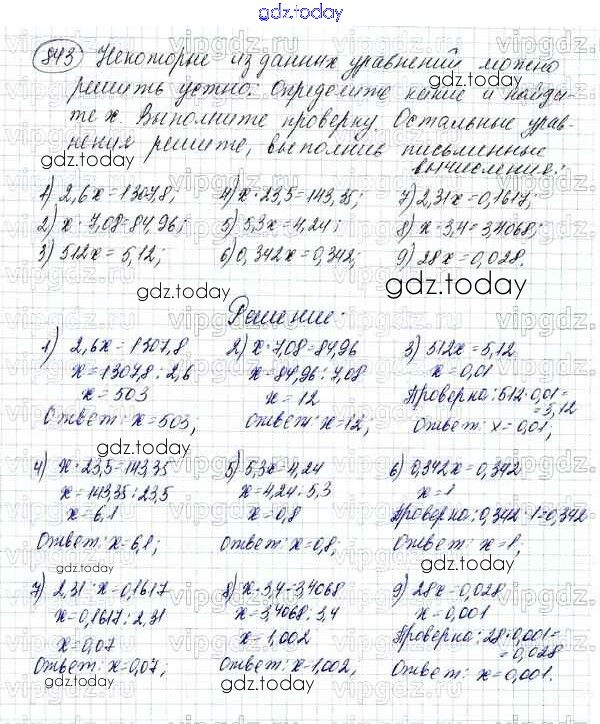 gdz.today
843 Некоторые из данных уравнений можно
решить устно. Определите какие и найди-
те x. Выполните проверку. Остальные урав-
нения решите, выполнив письменные
вычисления:
gdz.today
1) 2,6x=1307,8; 4) x·23,5=143,35; 7) 2,31x=0,1617;
2) x·7,08=84,96; 5) 5,3x=4,24; 8) x·3,4=3,4068;
3) 512x=5,12; 6) 0,342x=0,342; 9) 28x=0,028.
gdz.today gdz.today
Решение:
1) 2,6x=1307,8 2) x·7,08=84,96 3) 512x=5,12
x=1307,8:2,6 x=84,96:7,08 x=0,01
x=503 x=12 Проверка: 512·0,01=
=5,12
Ответ: x=503; Ответ: x=12; Ответ: x=0,01;
gdz.today
4) x·23,5=143,35 5) 5,3x=4,24 6) 0,342x=0,342
x=143,35:23,5 x=4,24:5,3 x=1
x=6,1 x=0,8 Проверка: 0,342·1=0,342
Ответ: x=6,1; Ответ: x=0,8; Ответ: x=1;
gdz.today gdz.today
7) 2,31·x=0,1617 8) x·3,4=3,4068 9) 28x=0,028
x=0,1617:2,31 x=3,4068:3,4 x=0,001
x=0,07 x=1,002 Проверка: 28·0,001=
=0,028
Ответ: x=0,07; Ответ: x=1,002; Ответ: x=0,001.
gdz.today gdz.today